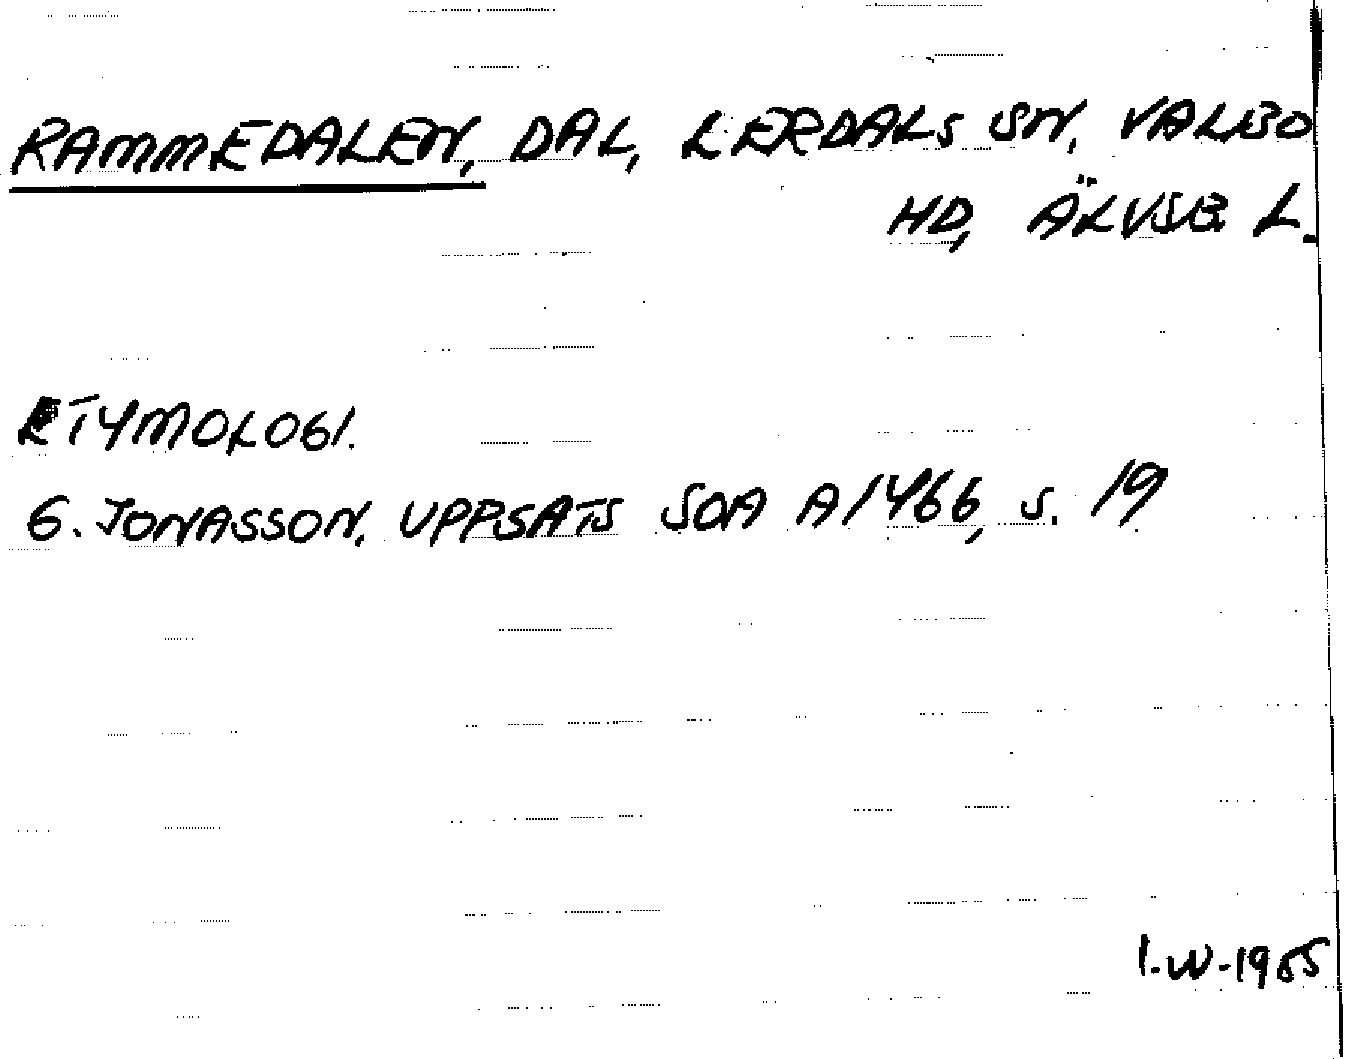 RAMMEDALEN, DAL, LERDALS SN, VALBO
HD, ÄLVSB L.
ETYMOLOGI.
G. JONASSON, UPPSATS SOA A1466, s. 19
I.W-1965